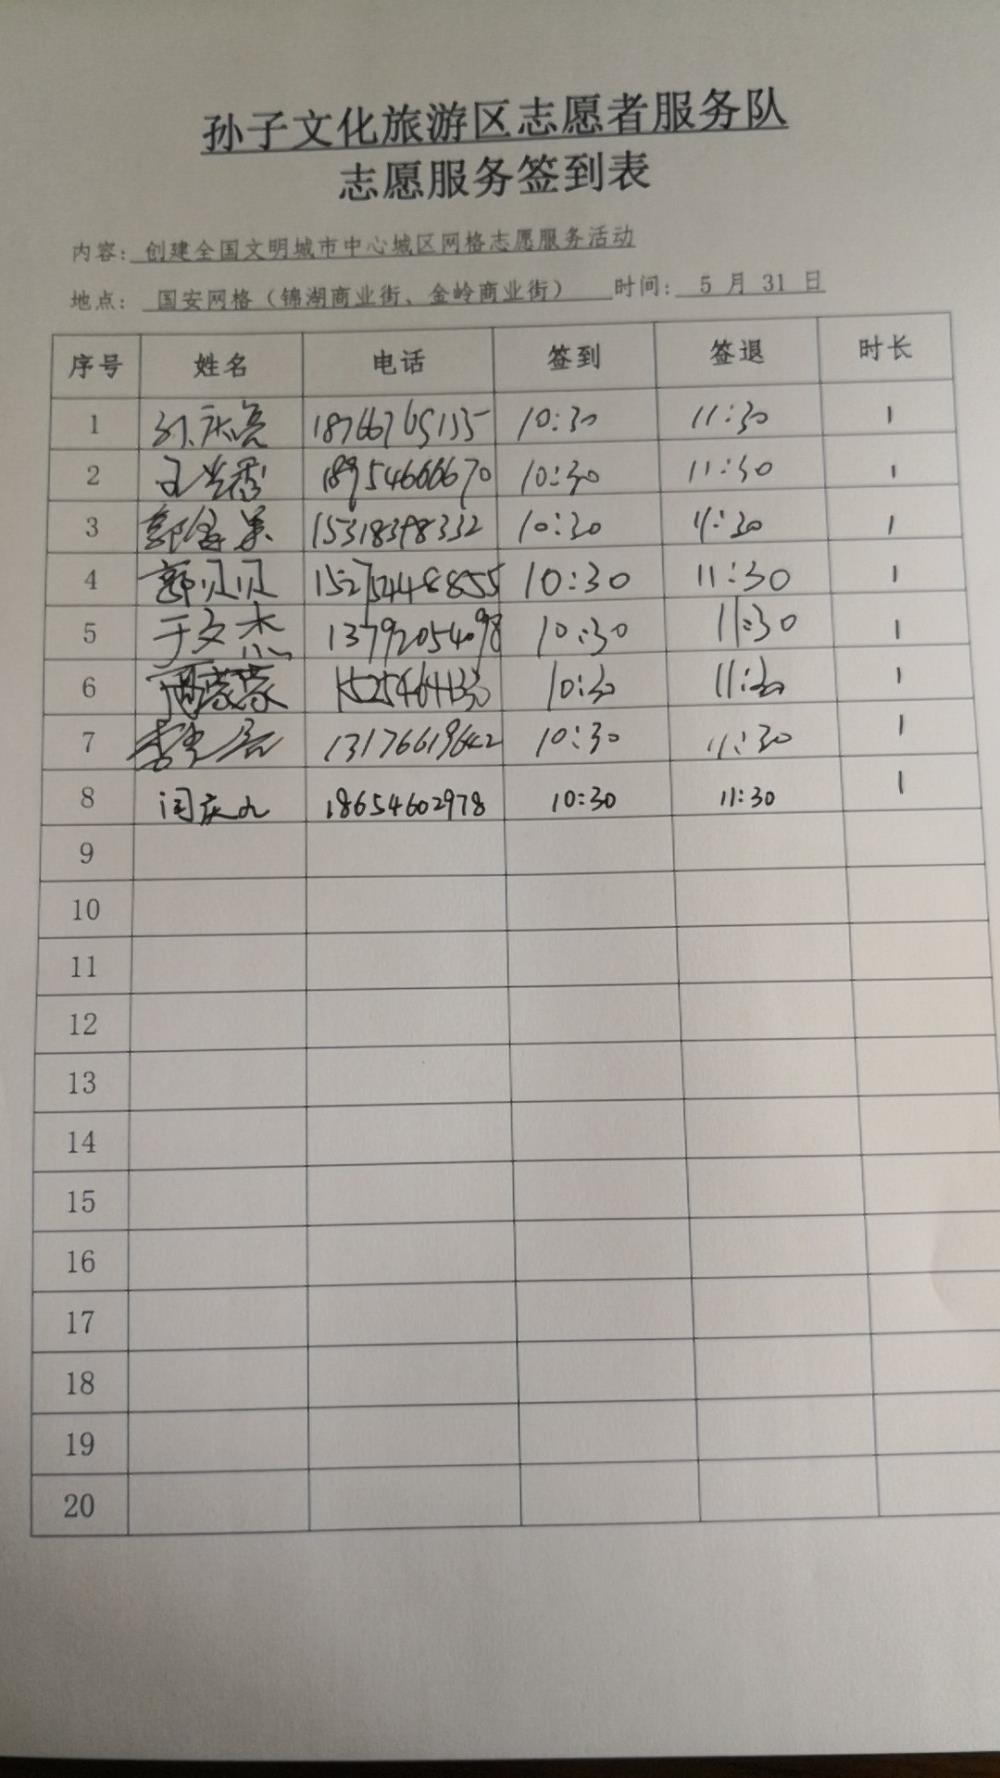 孙子文化旅游区志愿者服务队
志愿服务签到表
内容: 创建全国文明城市中心城区网格志愿服务活动
地点: 国安网格（锦湖商业街、金岭商业街） 时间: 5 月 31 日
序号 姓名 电话 签到 签退 时长
1 18766765135 10:30 11:30 1
2 18954666670 10:30 11:30 1
3 15318398332 10:30 11:30 1
4 郭贝贝 15275448855 10:30 11:30 1
5 于文杰 13792054098 10:30 11:30 1
6 10:30 11:30 1
7 13176619642 10:30 11:30 1
8 闫庆九 18654602978 10:30 11:30 1
9
10
11
12
13
14
15
16
17
18
19
20